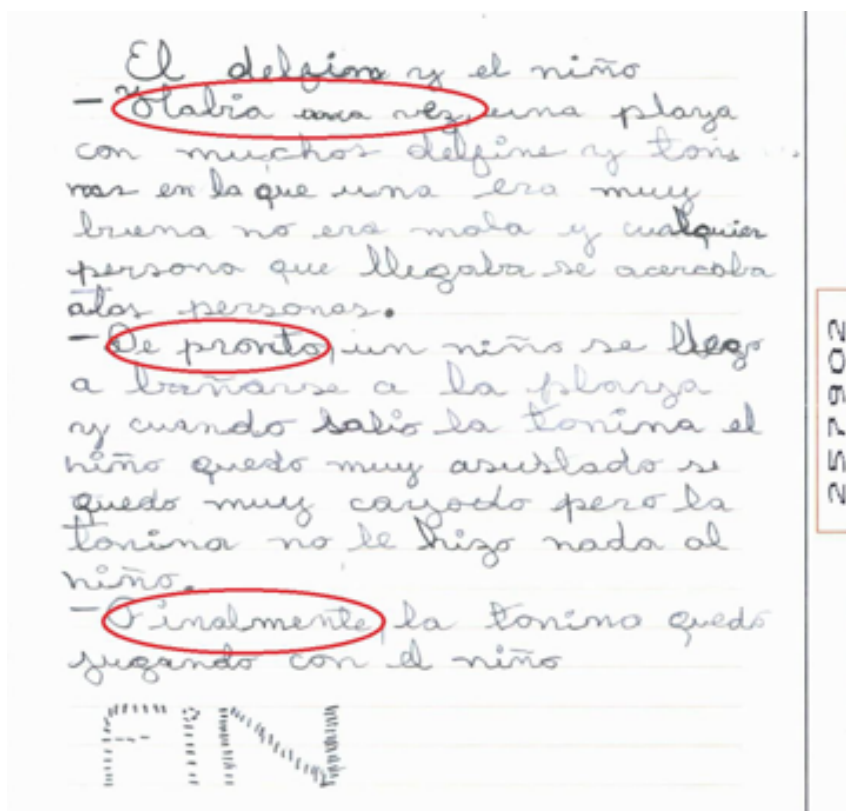 El delfin y el niño
- Habia una vez, una playa
con muchos delfine y toni
nas en la que una era muy
buena no era mala y cualquier
persona que llegaba se acercaba
alas personas.
- De pronto, un niño se llego
a bañarse a la playa
y cuando salio la tonina el
niño quedo muy asustado se
quedo muy cayado pero la
tonina no le hizo nada al
niño.
- Finalmente, la tonina quedo
jugando con el niño
FIN
257902